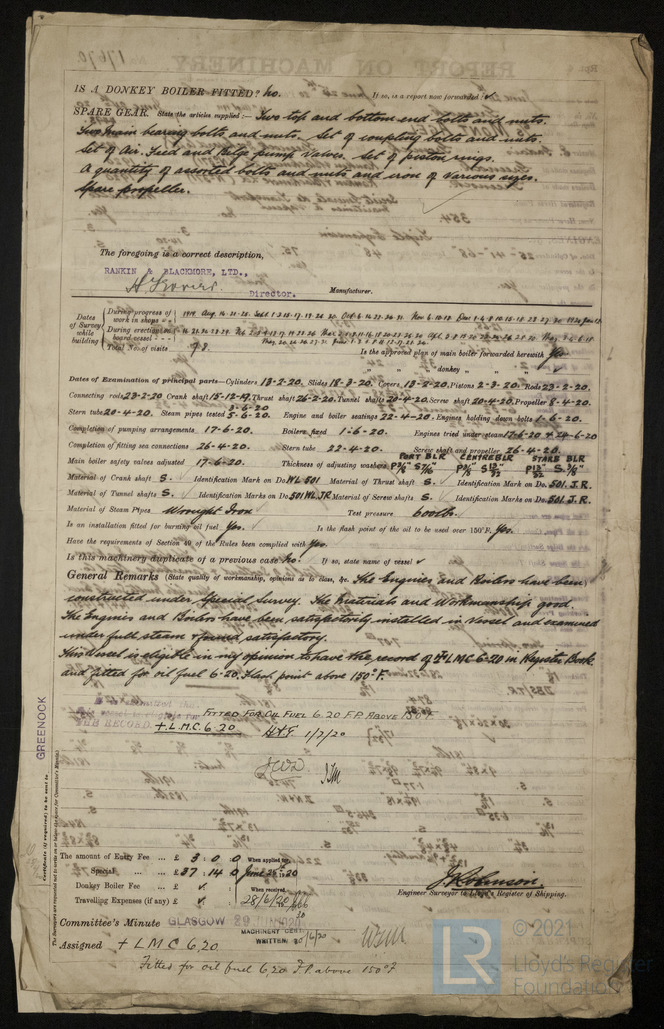 IS A DONKEY BOILER FITTED? No. If so, is a report now forwarded? ✓
SPARE GEAR. State the articles supplied:— Two top and bottom end bolts and nuts.
Two main bearing bolts and nuts. Set of coupling bolts and nuts.
Set of Air. Feed and Bilge pump valves. Set of piston rings.
A quantity of assorted bolts and nuts and iron of various sizes.
Spare propeller.
The foregoing is a correct description,
RANKIN & BLACKMORE, LTD.,
Director. Manufacturer.
Dates of Survey while building
During progress of work in shops
During erection on board vessel
Total No. of visits 98.
Is the approved plan of main boiler forwarded herewith Yes.
" " " donkey " " "
Dates of Examination of principal parts—Cylinders 13-2-20. Slides 18-3-20. Covers 13-2-20. Pistons 2-3-20. Rods 23-2-20.
Connecting rods 23-2-20 Crank shaft 15-12-19. Thrust shaft 26-2-20. Tunnel shafts 20-4-20. Screw shaft 20-4-20. Propeller 8-4-20.
Stern tube 20-4-20. Steam pipes tested 3-6-20 5-6-20. Engine and boiler seatings 22-4-20. Engines holding down bolts 1-6-20.
Completion of pumping arrangements 17-6-20. Boilers fixed 1-6-20. Engines tried under steam 17-6-20 & 24-6-20
Completion of fitting sea connections 26-4-20. Stern tube 22-4-20. Screw shaft and propeller 26-4-20.
Main boiler safety valves adjusted 17-6-20. Thickness of adjusting washers PORT BLR CENTRE BLR STARB BLR
Material of Crank shaft S. Identification Mark on Do. WL 501 Material of Thrust shaft S. Identification Mark on Do. 501 J.R.
Material of Tunnel shafts S. Identification Marks on Do. 501 WL JR Material of Screw shafts S. Identification Marks on Do. 501 J.R.
Material of Steam Pipes Wrought Iron Test pressure 600 lbs.
Is an installation fitted for burning oil fuel Yes. Is the flash point of the oil to be used over 150°F. Yes.
Have the requirements of Section 49 of the Rules been complied with Yes.
Is this machinery duplicate of a previous case No. If so, state name of vessel ✓
General Remarks (State quality of workmanship, opinions as to class, &c. The Engines and Boilers have been
constructed under Special Survey. The Materials and Workmanship good.
The Engines and Boilers have been satisfactorily installed in Vessel and examined
under full steam & found satisfactory.
This Vessel is eligible in my opinion to have the record of + LMC 6-20 in Register Book
and fitted for oil fuel 6-20. Flash point above 150°F.
FITTED FOR OIL FUEL 6.20 F.P. ABOVE 150°F
THE RECORD + L.M.C. 6.20
1/7/20
GREENOCK
Certificate (if required) to be sent to
The amount of Entry Fee ... £ 3 : 0 : 0 When applied for,
Special ... £ 37 : 14 : 0 June 28th 1920
Donkey Boiler Fee ... £ ✓ When received,
Travelling Expenses (if any) £ ✓ 28/6/20
Engineer Surveyor to Lloyd's Register of Shipping.
Committee's Minute GLASGOW 29 JUN 1920
MACHINERY CERT. WRITTEN
Assigned + L M C 6,20
Fitted for oil fuel 6,20 F.P. above 150°F
LR
© 2021
Lloyd's Register
Foundation